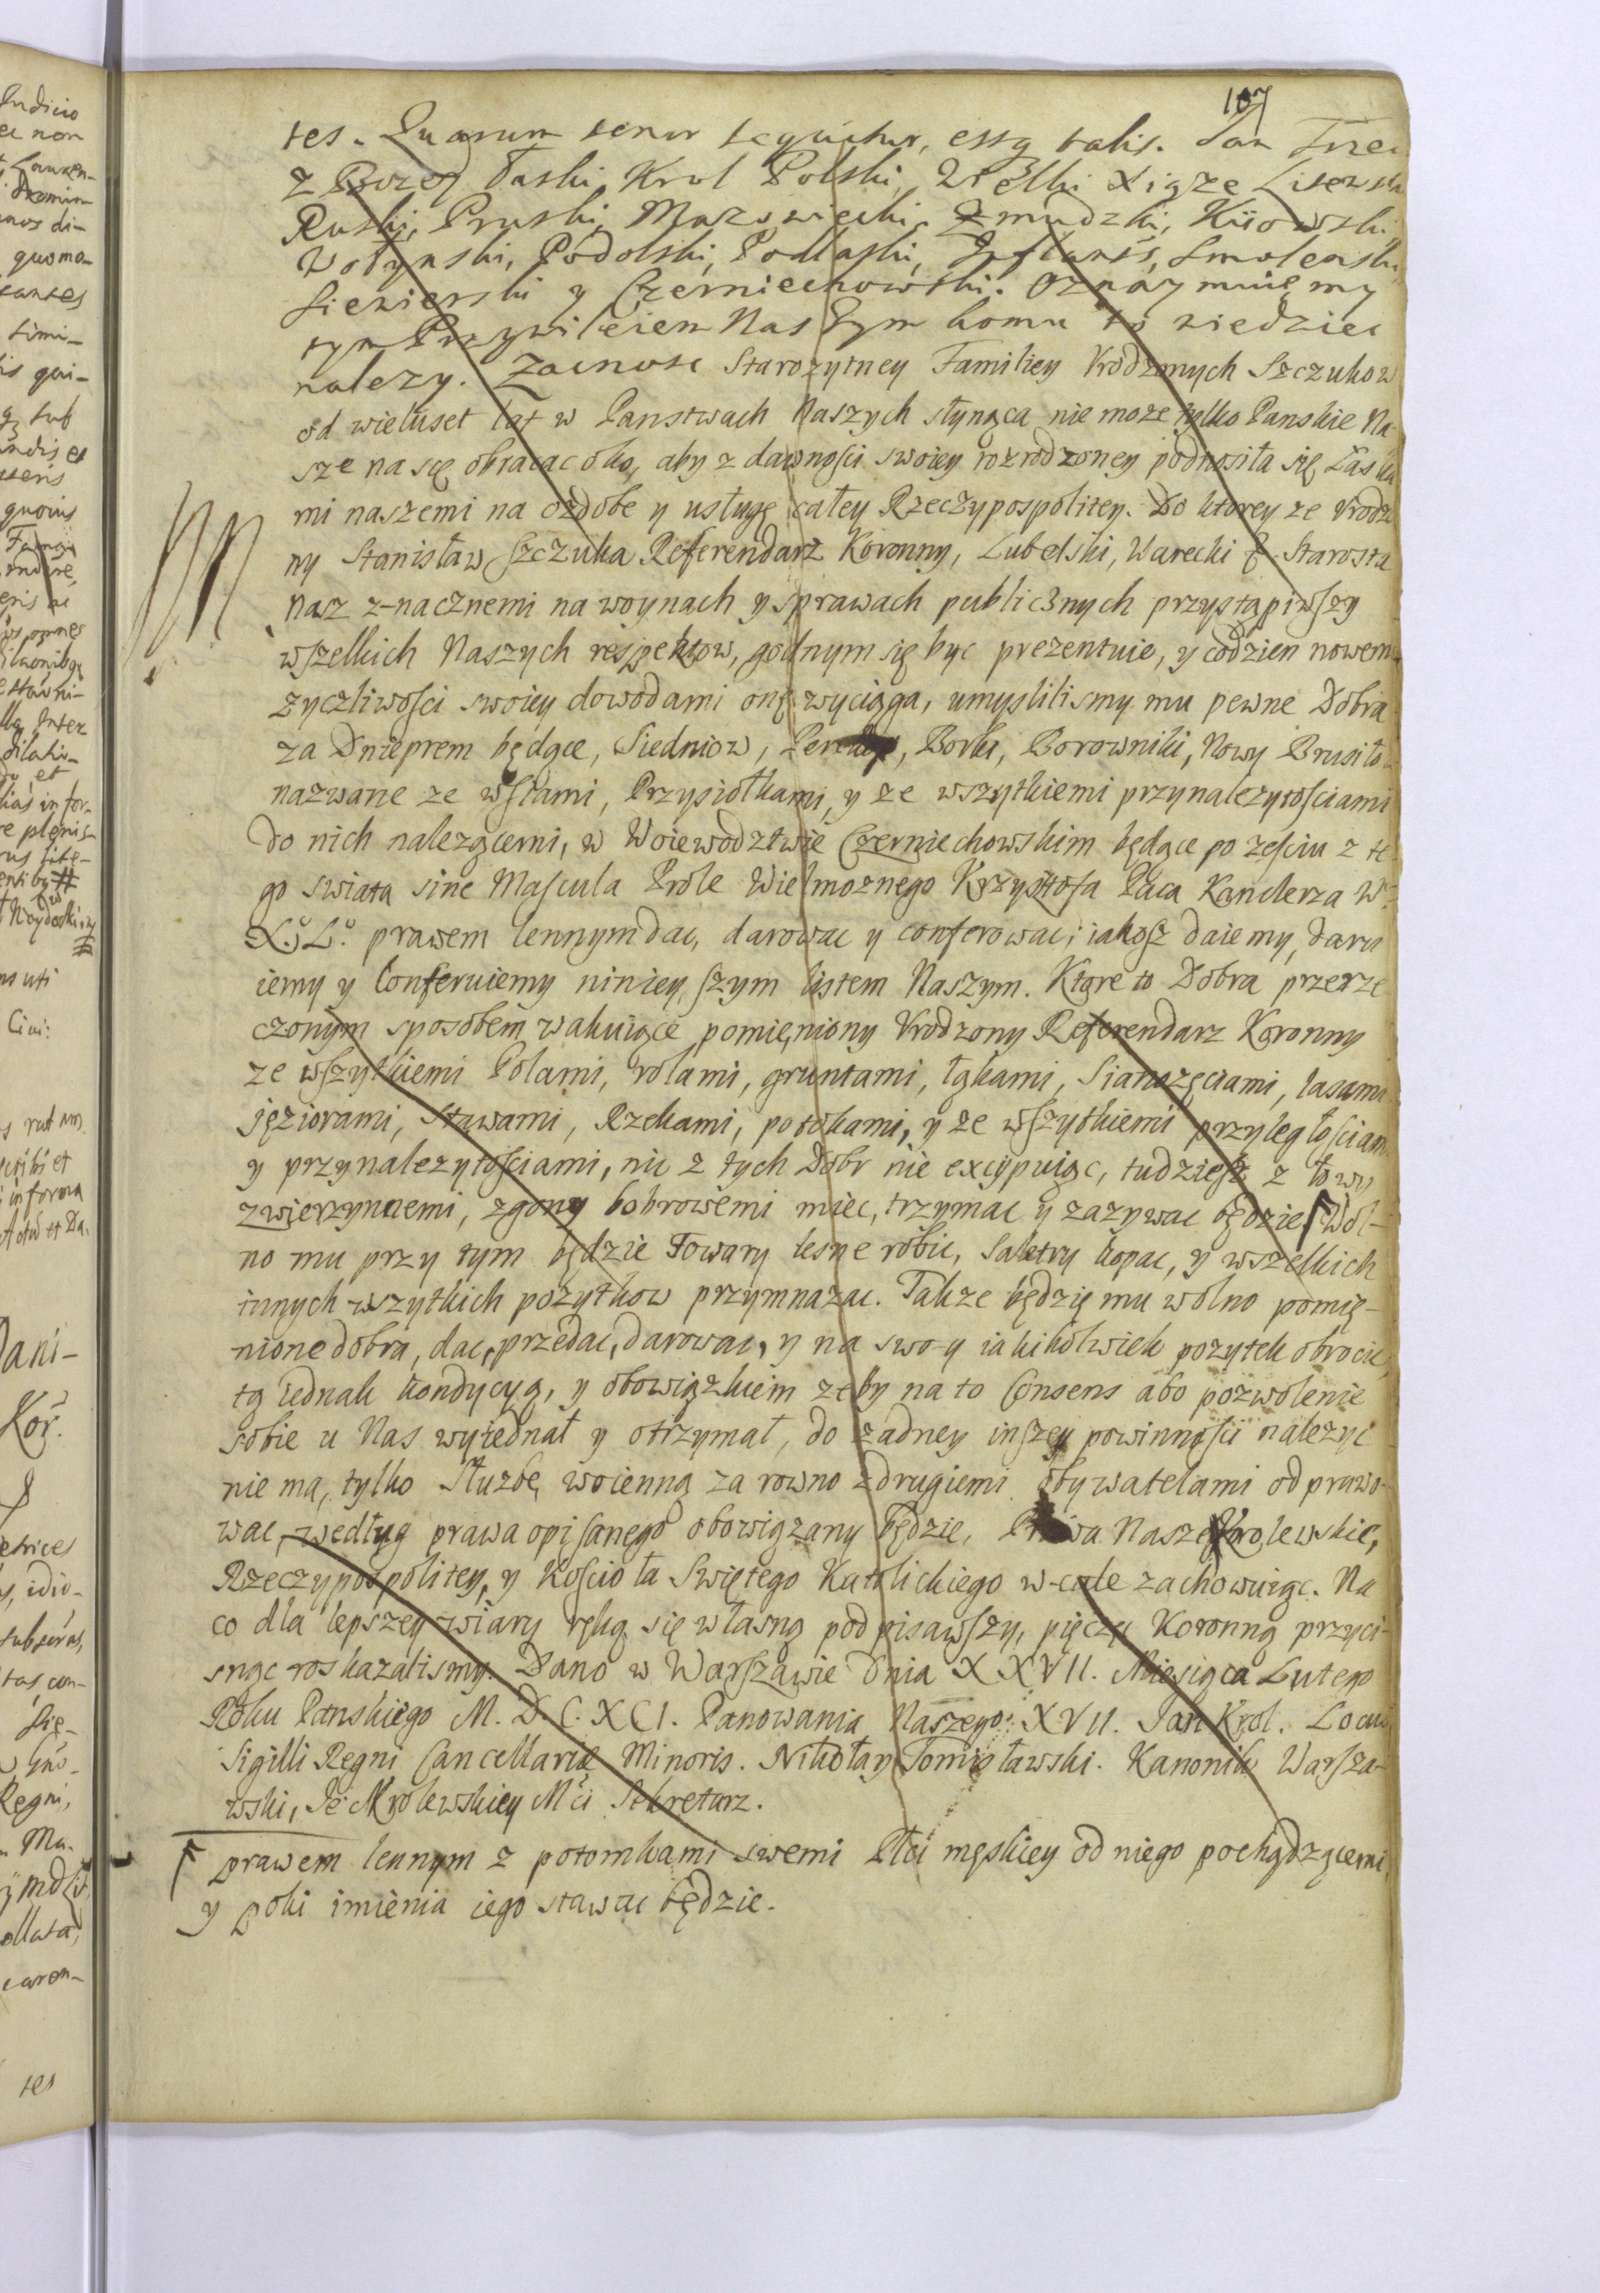 107
tes. Quarum tenor sequitur, estq talis. Jan Trzeci
z Bozey Łaski Krol Polski, Wielki Xiąze Litewski
Ruski, Pruski, Mazowiecki, Zmudzki, Kiiowski,
Wołynski, Podolski, Podlaski, Inflants, Smolenski
Siewierski y Czerniechowski. Oznaymuięmy
tym Przywileiem Naszym komu to wiedziec
nalezy. Zacnosc Starozytney Familiey Vrodzonych Szczukow
od wieluset lat w Panstwach Naszych słynąca nie moze tylko Panskie Na
sze na się obracac oko, aby z dawnosci swoiey rozrodzoney podnosiła się Łaska
mi naszemi na ozdobe y usługę całey Rzeczypospolitey. Do ktorey ze Vrodzo
ny Stanisław Szczuka Referendarz Koronny, Lubelski, Warecki & Starosta
Nasz z-nacznemi na woynach y sprawach publicznych przystąpiwszy
wszelkich Naszych respektow, godnym się byc prezentuie, y codzien nowemi
zyczliwosci swoiey dowodami onę wyciąga, umyslilismy mu pewne Dobra
za Dnieprem będące, Siedniow, Borki, Borowniki, Nowy Brusiłow
nazwane ze wsiami, Przysiołkami, y ze wszytkiemi przynalezytosciami
do nich nalezącemi, w Woiewodztwie Czerniechowskim będące po zesciu z te
go swiata sine Mascula Prole Wielmoznego Krzysztofa Paca Kanclerza W.
X. L. prawem lennym dac, darowac y conferowac; iakosz daiemy, daru
iemy y Conferuiemy ninieyszym listem Naszym. Ktore to Dobra przerze
czonym sposobem wakuiące pomięniony Vrodzony Referendarz Koronny
ze wszytkiemi Polami, rolami, gruntami, łąkami, Sianozęciami, lasami
jęziorami, Stawami, Rzekami, potokami, y ze wszytkiemi przyległosciami
y przynalezytosciami, nic z tych Dobr nie excypuiąc, tudziesz z łowy
zwierzynnemi, zgony bobrowemi miec, trzymac y zazywac będzie Γ Wol-
no mu przy tym będzie Towary lesne robic, Saletry kopac, y wszelkich
innych wszytkich pozytkow przymnazac. Takze będzię mu wolno pomię-
nione dobra, dac, przedac, darowac, y na swoy iakikolwiek pozytek obrocic,
tą iednak kondycyą, y obowiązkiem zeby na to Consens abo pozwolenie
sobie u Nas wyiednał y otrzymał, do zadney inszey powinnosci nalezyc
nie ma, tylko Słuzbę woienną za rowno z drugiemi obywatelami odprawo
wac, według prawa opisanego obowiązany będzie, Prawa Nasze Krolewskie,
Rzeczypospolitey, y Koscioła Swiętego Katolickiego w-cale zachowuiąc. Na
co dla lepszey wiary ręką się własną podpisawszy, pięczęc Koronną przyci-
snąc roskazalismy. Dano w Warszawie Dnia XXVII. Miesiąca Lutego
Roku Panskiego M. D. C. XCI. Panowania Naszego XVII. Jan Krol. Locus
Sigilli Regni Cancellariæ Minoris. Nikołay Tomisławski. Kanonik Warsza-
wski, Je Krolewskiey Mci Sekretarz.
Γ prawem lennym z potomkami swemi Płci męskiey od niego pochądzącemi,
y poki imienia iego stawac będzie.